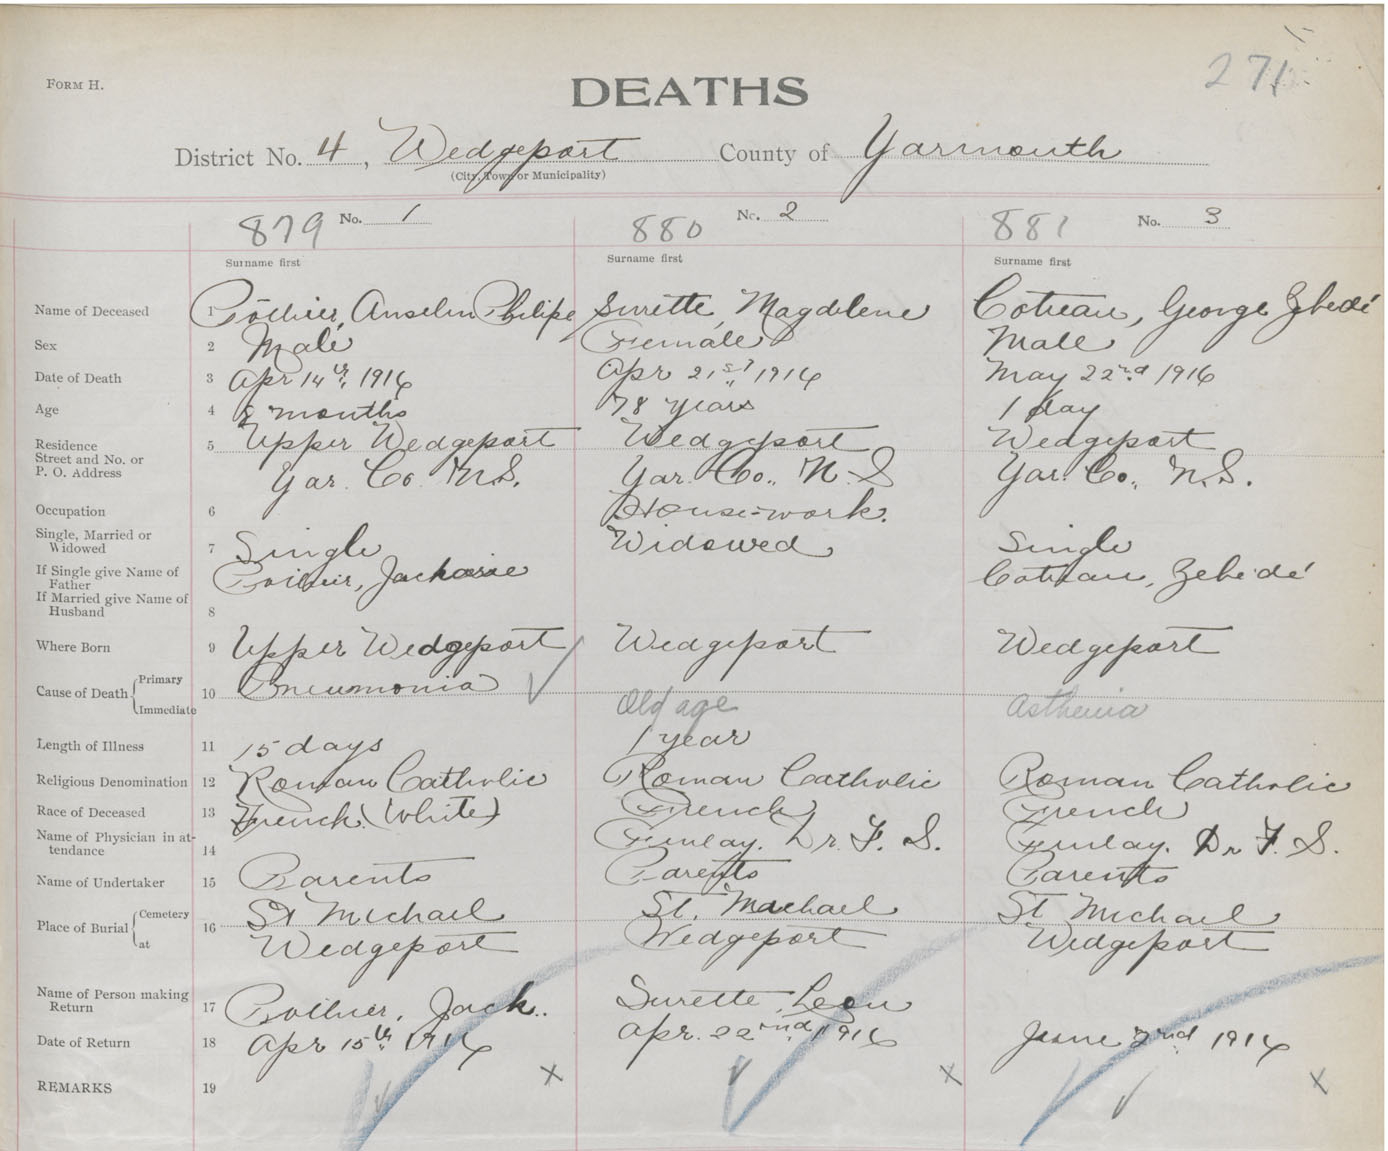 FORM H.
DEATHS
271
District No. 4, Wedgeport County of Yarmouth
(City, Town or Municipality)
879 No. 1 880 No. 2 881 No. 3
Surname first Surname first Surname first
Name of Deceased 1 Pothier, Anselm Philipe Surette, Magdelene Cotreau, George Zebedé
Sex 2 Male Female Male
Date of Death 3 Apr 14th, 1916 Apr 21st, 1916 May 22nd 1916
Age 4 months 78 years 1 day
Residence 5 Upper Wedgeport Wedgeport Wedgeport
Street and No. or
P. O. Address Yar. Co. N.S. Yar. Co., N.S Yar. Co., N.S.
Occupation 6 House-work.
Single, Married or
Widowed 7 Single Widowed Single
If Single give Name of
Father Pothier, Cotreau, Zebedé
If Married give Name of
Husband 8
Where Born 9 Upper Wedgeport Wedgeport Wedgeport
Cause of Death Primary 10 Pneumonia
Immediate Old age Asthenia
Length of Illness 11 15 days 1 year
Religious Denomination 12 Roman Catholic Roman Catholic Roman Catholic
Race of Deceased 13 French (White) French French
Name of Physician in at-
tendance 14 Finlay. Dr. F. S. Finlay. Dr F. S.
Name of Undertaker 15 Parents Parents Parents
Place of Burial Cemetery 16 St Michael St. Machael St Michael
at Wedgeport Wedgeport Wedgeport
Name of Person making
Return 17 Pothier, Jack.. Surette, Leon
Date of Return 18 Apr 15th 1916 Apr. 22nd, 1916 June 2nd 1916
REMARKS 19